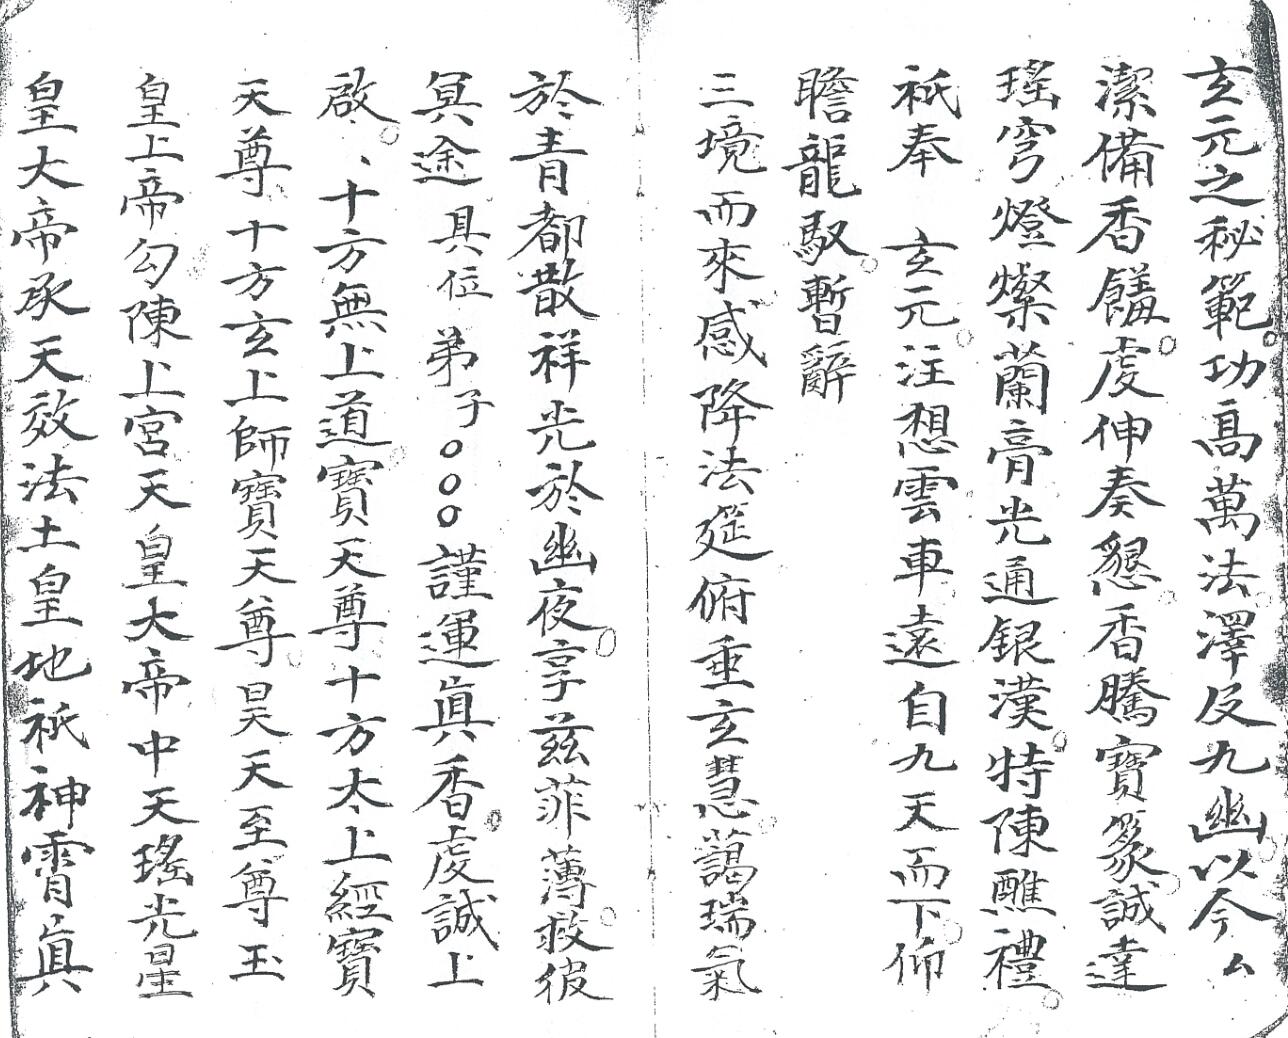 玄元之秘範功髙萬法澤及九幽以今厶
潔備香饈虔伸奏懇香騰寶篆誠達
瑤穹燈燦蘭膏光通銀漢特陳醮禮
祇奉　玄元注想雲車遠自九天而下仰
瞻龍馭暫辭
三境而來感降法筵俯垂玄慧藹瑞氣
於青都散祥光於幽夜享茲菲薄救彼
冥途具位弟子○○○謹運眞香虔誠上
啟、十方無上道寶天尊十方太上經寶
天尊十方玄上師寶天尊昊天至尊玉
皇上帝勾陳上宮天皇大帝中天瑤光星
皇大帝承天效法土皇地祇神霄眞